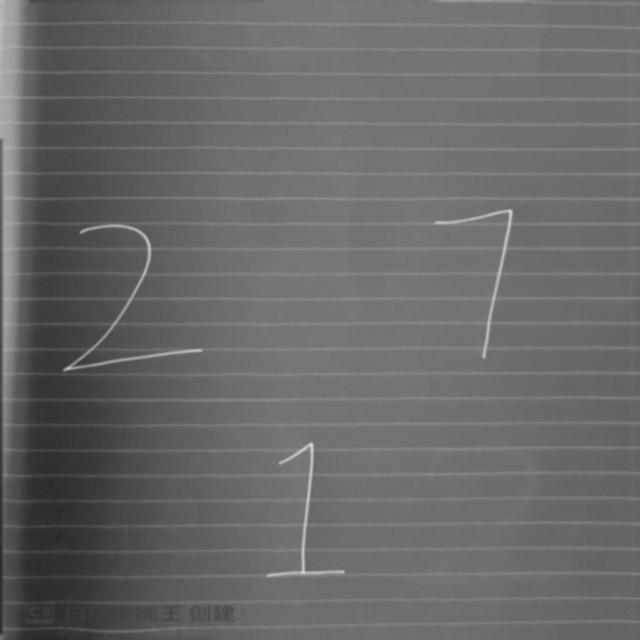 2 7
1
CS 扫描全能王 创建